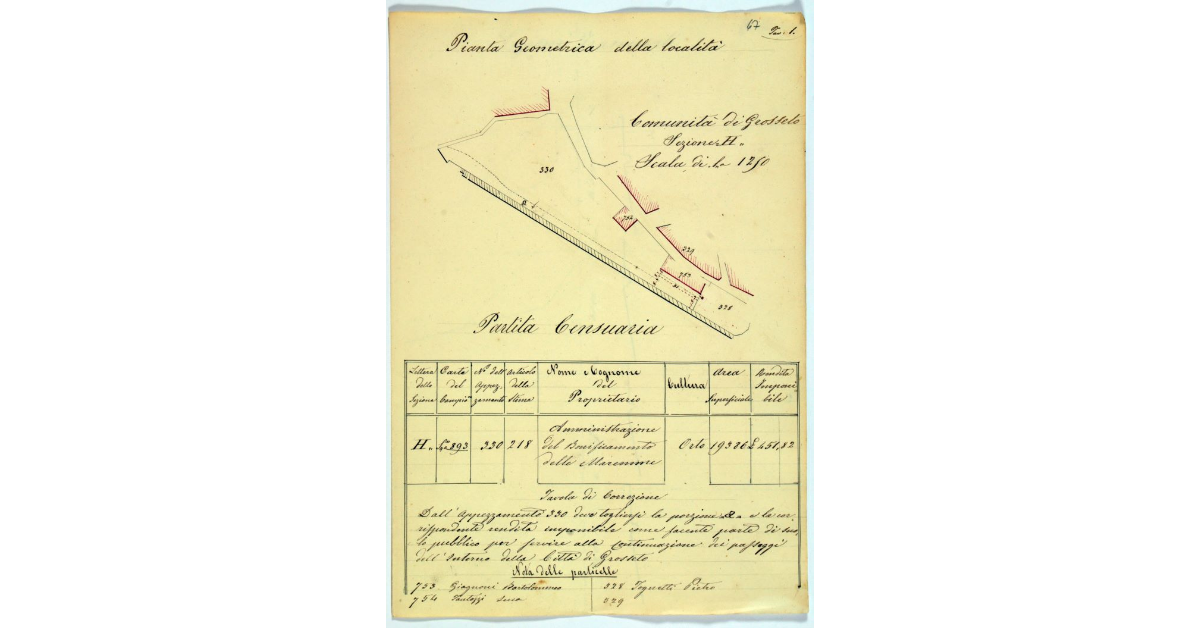 67 Tav. 1.
Pianta Geometrica della località
Comunità di Grosseto
Sezione H„
Scala di 1 a 1250
330
754
329
753
328
Partita Censuaria
Lettera della Sezione | Carte del Campione | N.° dell' Appezzamento | Articolo della Stima | Nome e Cognome del Proprietario | Cultura | Area Superficiale | Rendita Imponibile
H„ | 893 | 330 | 218 | Amministrazione del Bonificamento delle Maremme | Orto | 19386 | £ 451,82
Tavola di Correzione
Dall' Appezzamento 330 deve togliersi la porzione a e la cor-
rispondente rendita imponibile come facente parte di suo-
lo pubblico per servire alla continuazione dei passeggi
dell' interno della Città di Grosseto
Nota delle particelle
753 Giagnoni Bartolommeo | 328 Pietro
754 | 329